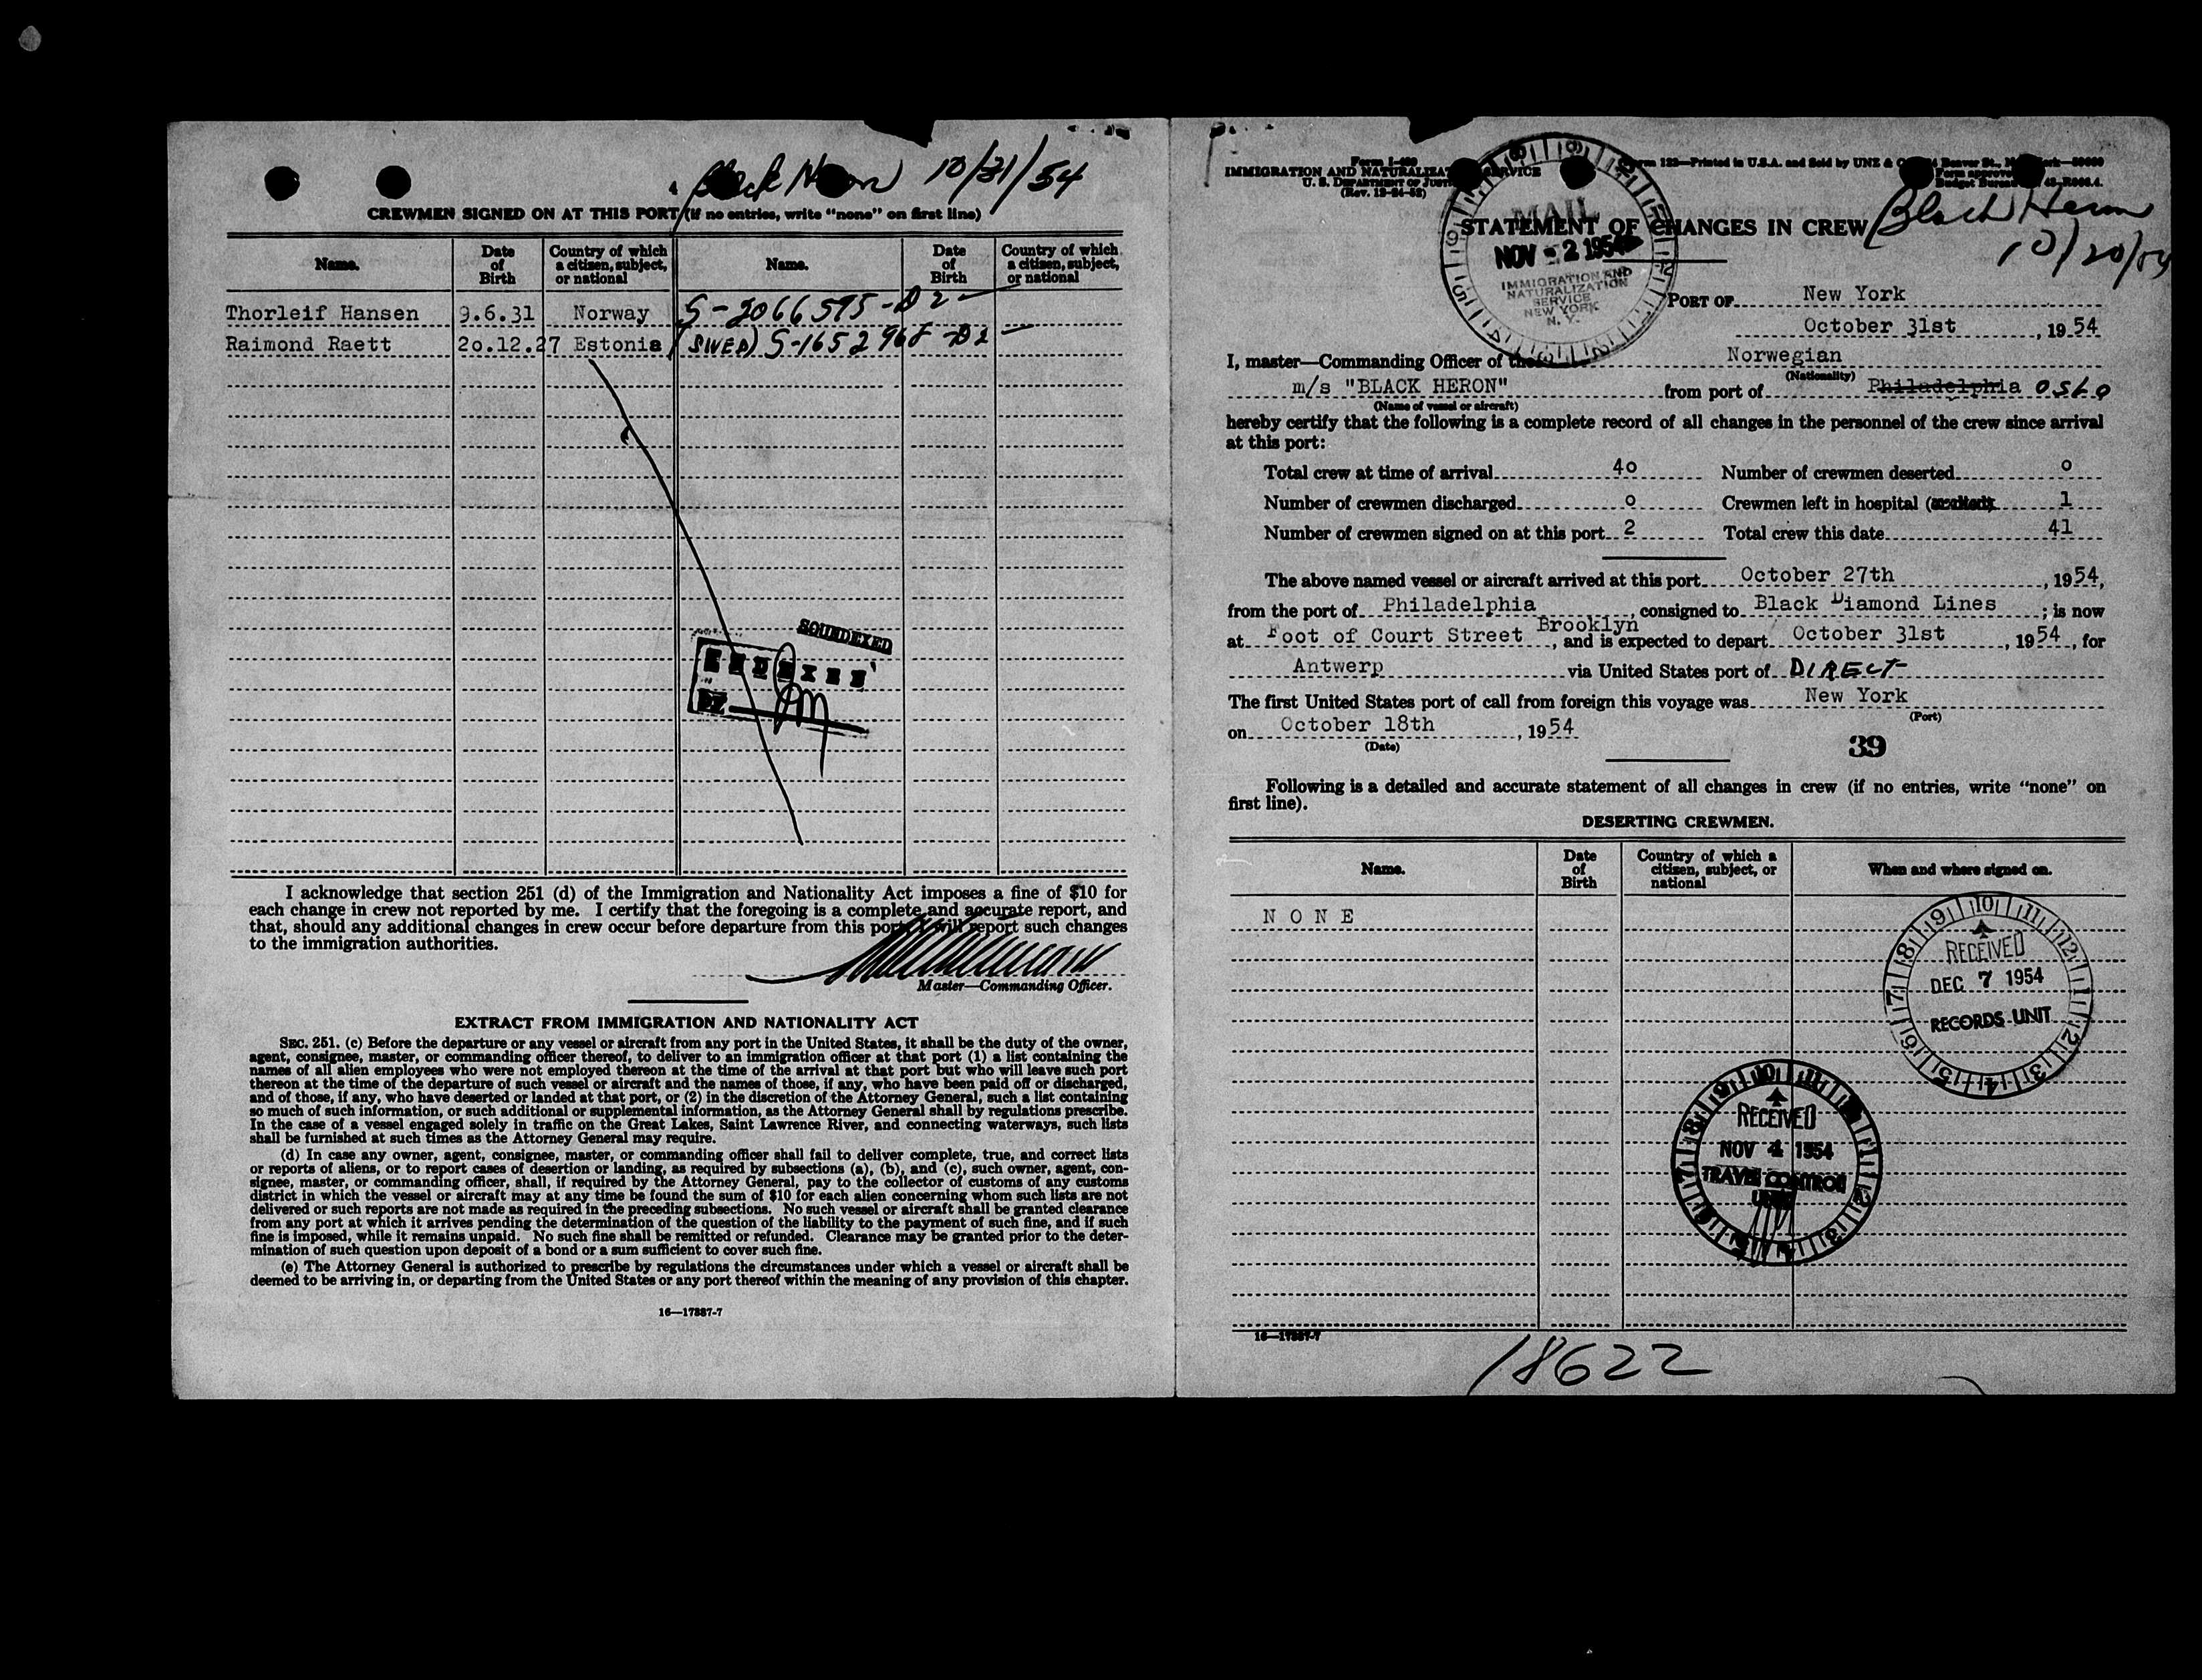 Black Heron 10/31/54
CREWMEN SIGNED ON AT THIS PORT (If no entries, write "none" on first line)
Name. Date of Birth Country of which a citizen, subject, or national Name. Date of Birth Country of which a citizen, subject, or national
Thorleif Hansen 9.6.31 Norway S-2066575-D2
Raimond Raett 20.12.27 Estonia (SWED) S-1652968-D2
SOUNDEXED
I acknowledge that section 251 (d) of the Immigration and Nationality Act imposes a fine of $10 for
each change in crew not reported by me. I certify that the foregoing is a complete and accurate report, and
that, should any additional changes in crew occur before departure from this port, I will report such changes
to the immigration authorities.
Master—Commanding Officer.
EXTRACT FROM IMMIGRATION AND NATIONALITY ACT
SEC. 251. (c) Before the departure or any vessel or aircraft from any port in the United States, it shall be the duty of the owner,
agent, consignee, master, or commanding officer thereof, to deliver to an immigration officer at that port (1) a list containing the
names of all alien employees who were not employed thereon at the time of the arrival at that port but who will leave such port
thereon at the time of the departure of such vessel or aircraft and the names of those, if any, who have been paid off or discharged,
and of those, if any, who have deserted or landed at that port, or (2) in the discretion of the Attorney General, such a list containing
so much of such information, or such additional or supplemental information, as the Attorney General shall by regulations prescribe.
In the case of a vessel engaged solely in traffic on the Great Lakes, Saint Lawrence River, and connecting waterways, such lists
shall be furnished at such times as the Attorney General may require.
(d) In case any owner, agent, consignee, master, or commanding officer shall fail to deliver complete, true, and correct lists
or reports of aliens, or to report cases of desertion or landing, as required by subsections (a), (b), and (c), such owner, agent, con-
signee, master, or commanding officer, shall, if required by the Attorney General, pay to the collector of customs of any customs
district in which the vessel or aircraft may at any time be found the sum of $10 for each alien concerning whom such lists are not
delivered or such reports are not made as required in the preceding subsections. No such vessel or aircraft shall be granted clearance
from any port at which it arrives pending the determination of the question of the liability to the payment of such fine, and if such
fine is imposed, while it remains unpaid. No such fine shall be remitted or refunded. Clearance may be granted prior to the deter-
mination of such question upon deposit of a bond or a sum sufficient to cover such fine.
(e) The Attorney General is authorized to prescribe by regulations the circumstances under which a vessel or aircraft shall be
deemed to be arriving in, or departing from the United States or any port thereof within the meaning of any provision of this chapter.
16—17887-7
IMMIGRATION AND NATURALIZATION SERVICE
U. S. DEPARTMENT OF JUSTICE
(Rev. 12-24-52)
Printed in U.S.A. and Sold by UNZ & CO
Form approved
STATEMENT OF CHANGES IN CREW
Black Heron
10/20/54
MAIL
NOV - 2 1954
IMMIGRATION AND
NATURALIZATION
SERVICE
NEW YORK
N. Y.
PORT OF New York
October 31st, 1954
I, master—Commanding Officer of the Norwegian
(Nationality)
m/s "BLACK HERON" from port of Philadelphia OSLO
(Name of vessel or aircraft)
hereby certify that the following is a complete record of all changes in the personnel of the crew since arrival
at this port:
Total crew at time of arrival 40 Number of crewmen deserted 0
Number of crewmen discharged 0 Crewmen left in hospital 1
Number of crewmen signed on at this port 2 Total crew this date 41
The above named vessel or aircraft arrived at this port October 27th, 1954,
from the port of Philadelphia, consigned to Black Diamond Lines; is now
at Foot of Court Street Brooklyn, and is expected to depart October 31st, 1954, for
Antwerp via United States port of DIRECT
The first United States port of call from foreign this voyage was New York
(Port)
on October 18th, 1954
(Date)
39
Following is a detailed and accurate statement of all changes in crew (if no entries, write "none" on
first line).
DESERTING CREWMEN.
Name. Date of Birth Country of which a citizen, subject, or national When and where signed on.
N O N E
RECEIVED
DEC 7 1954
RECORDS UNIT
RECEIVED
NOV 4 1954
TRAVEL CONTROL
UNIT
16—17887-7
18622